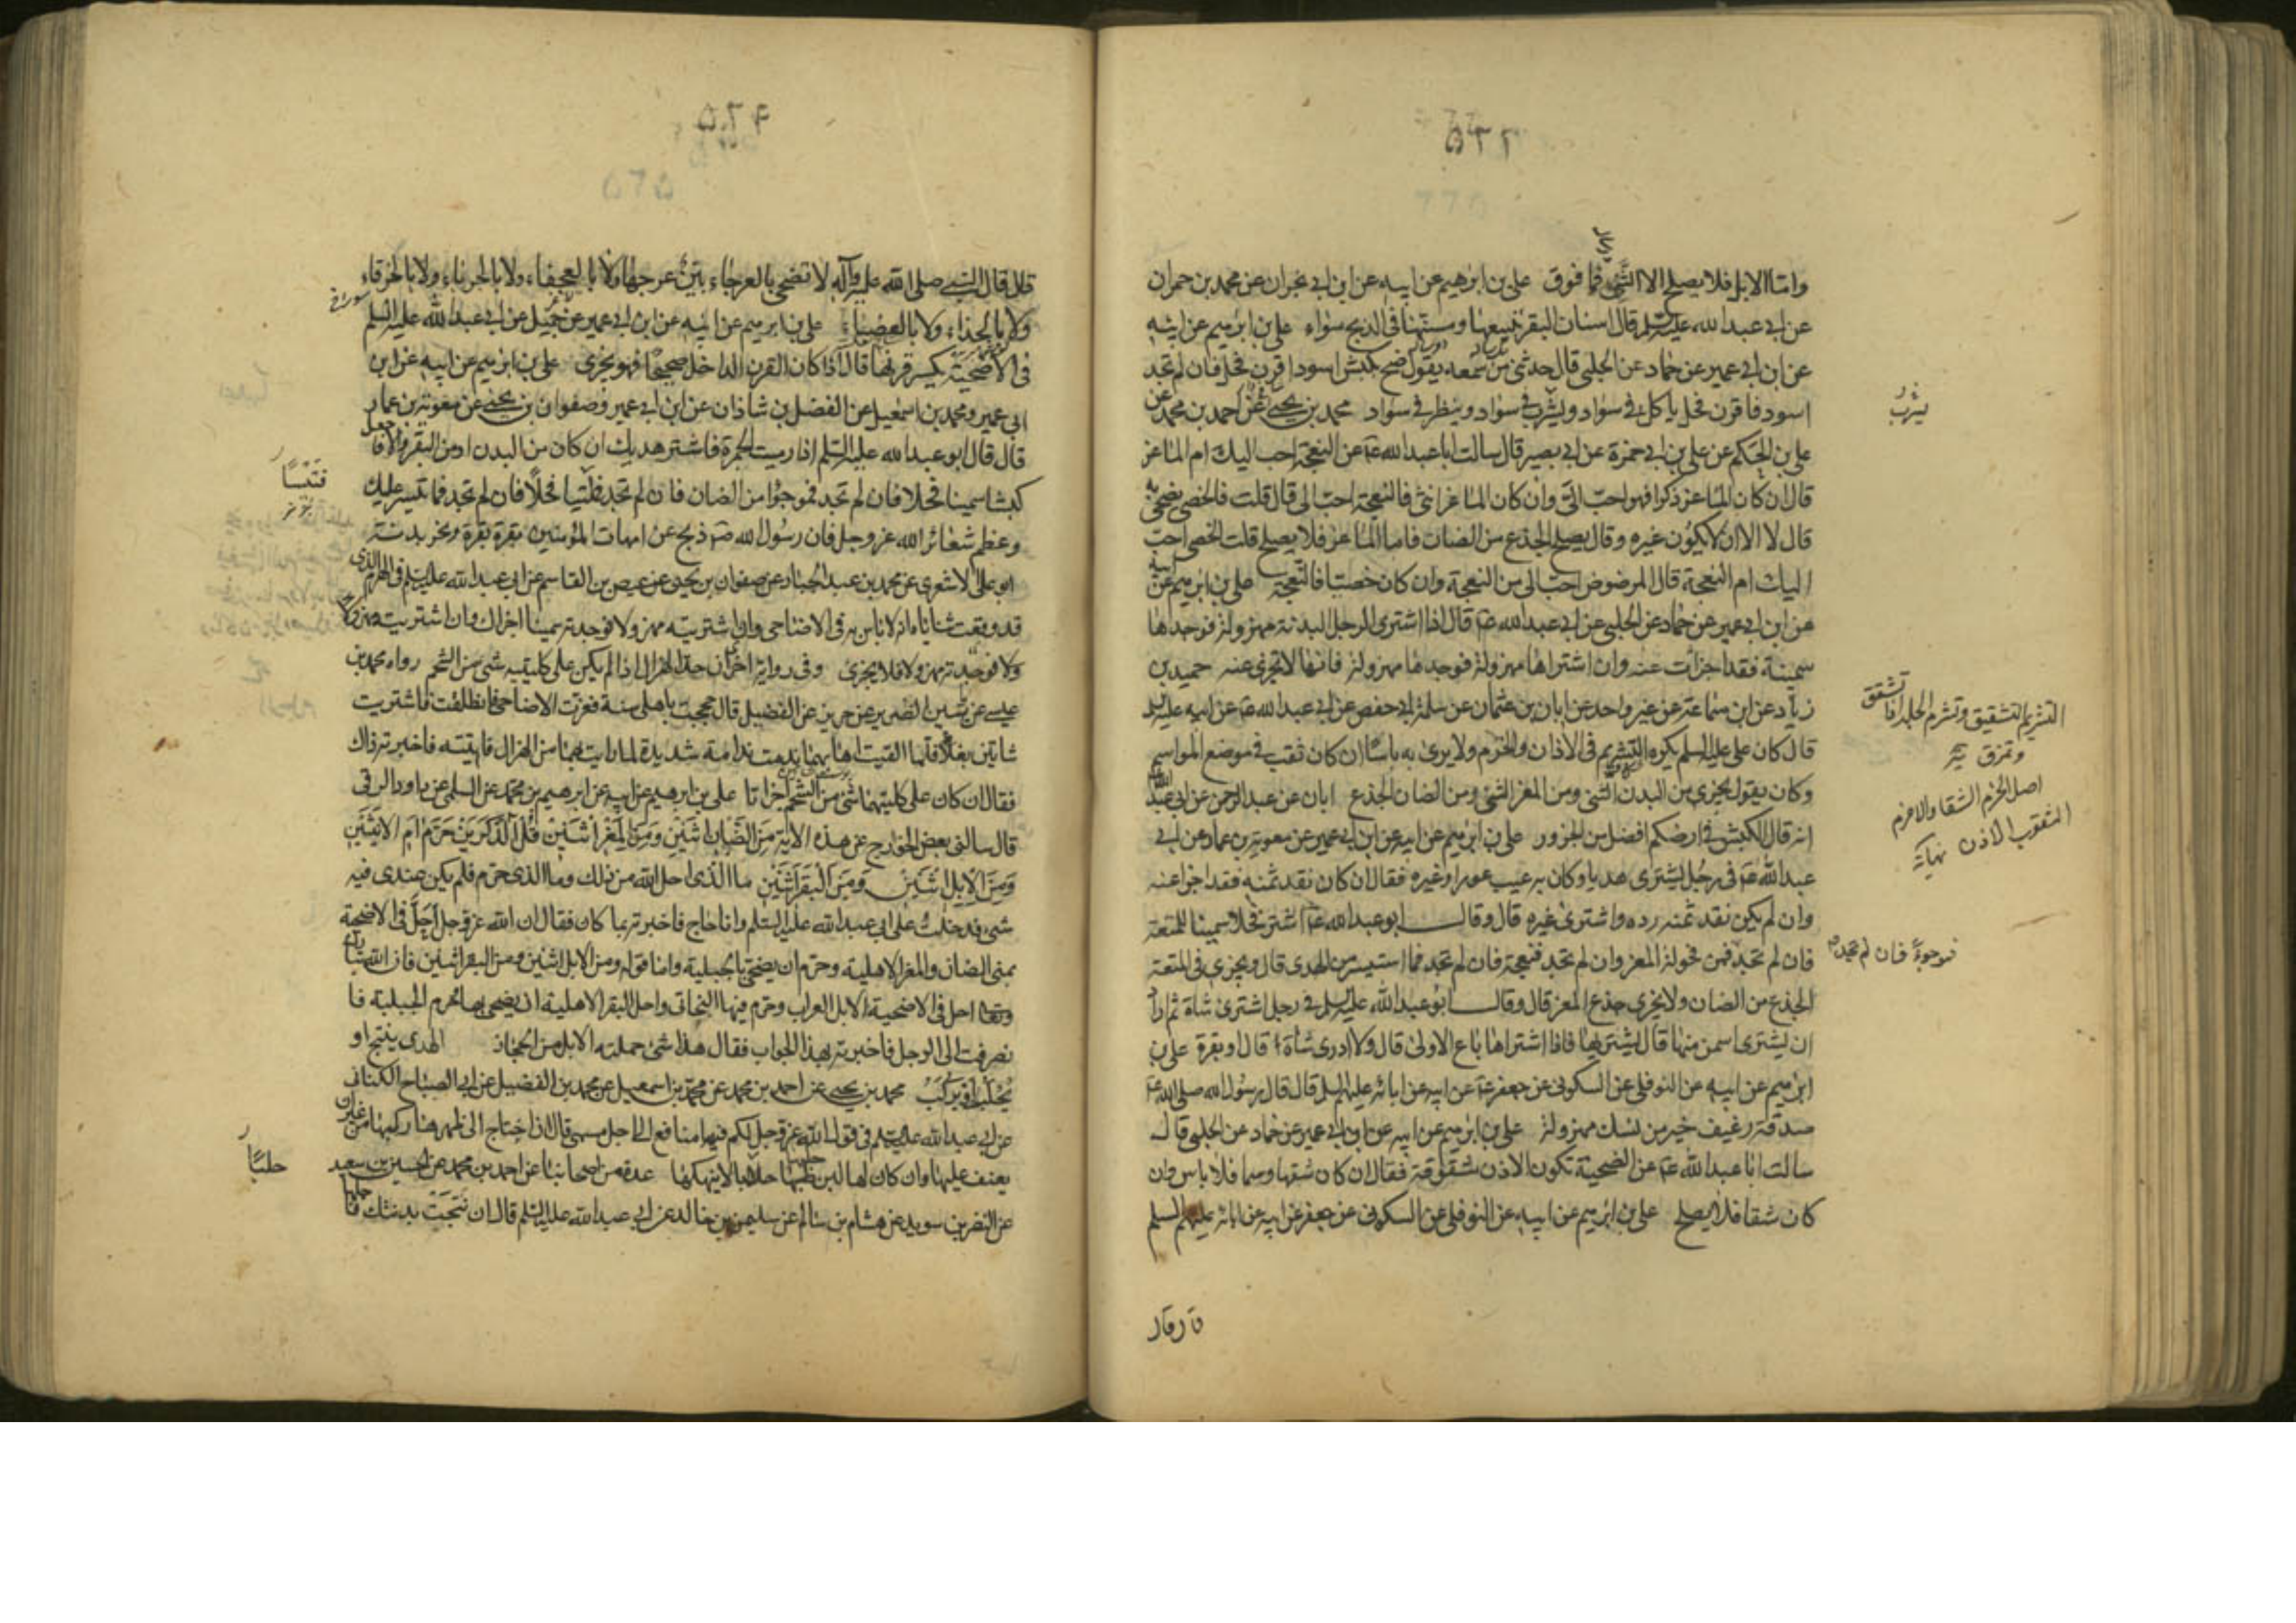 ٥٢٦
واما الابل فلا يصلح الا الثنى فما فوق علي بن ابرهيم عن ابيه عن ابن ابي نجران عن محمد بن حمران
عن ابي عبد الله عليه السلم قال اسنان البقر تبيعها ومسنها في الذبح سواء علي بن ابرهيم عن ابيه
عن ابن ابي عمير عن حماد عن الحلبى قال حدثنى من سمعه يقول ضح بكبش اسود اقرن فحل فان لم تجد
اسود فاقرن فحل ياكل في سواد ويشرب في سواد وينظر في سواد محمد بن يحيى عن احمد بن محمد عن
علي بن الحكم عن علي بن ابي حمزة عن ابي بصير قال سالت ابا عبد الله ع عن النعجة احب اليك ام الماعز
قال ان كان الماعز ذكرا فهو احب الى وان كان الماعز انثى فالنعجة احب الى قال قلت فالخصى يضحى به
قال لا الا ان لا يكون غيره وقال يصلح الجذع من الضان فاما الماعز فلا يصلح قلت الخصى احب
اليك ام النعجة قال المرضوض احب الى من النعجة وان كان خصيا فالنعجة علي بن ابرهيم عن ابيه
عن ابن ابي عمير عن حماد عن الحلبى عن ابي عبد الله ع قال اذا اشترى الرجل البدنة مهزولة فوجدها
سمينة فقد اجزات عنه وان اشتراها مهزولة فوجدها مهزولة فانها لا تجزى عنه حميد بن
زياد عن ابن سماعة عن غير واحد عن ابان بن عثمان عن سلمة ابي حفص عن ابي عبد الله ع عن ابيه عليه السلم
قال كان علي عليه السلم يكره التشريم في الاذان والخرم ولا يرى به باسا ان كان ثقب في موضع المواسم
وكان يقول يجزى من البدن الثنى ومن المعز الثنى ومن الضان الجذع ابان عن عبد الرحمن عن ابي عبد الله ع
انه قال الكبش في ارضكم افضل من الجزور علي بن ابرهيم عن ابيه عن ابن ابي عمير عن معوية بن عمار عن ابي
عبد الله ع في رجل يشترى هديا وكان به عيب عور او غيره فقال ان كان نقد ثمنه فقد اجزا عنه
وان لم يكن نقد ثمنه رده واشترى غيره قال وقال ابو عبد الله ع اشتر فحلا سمينا للمتعة
فان لم تجد فمن فحولة المعز وان لم تجد فنعجة فان لم تجد فما استيسر من الهدى قال ويجزى في المتعة
الجذع من الضان ولا يجزى جذع المعز قال وقال ابو عبد الله عليه السلم في رجل اشترى شاة ثم اراد
ان يشترى اسمن منها قال يشتريها فاذا اشتراها باع الاولى قال ولا ادرى شاة قال او بقرة علي بن
ابرهيم عن ابيه عن النوفلى عن السكونى عن جعفر ع عن ابيه عن ابائه عليهم السلم قال قال رسول الله صلى الله عليه
صدقة رغيف خير من نسك مهزولة علي بن ابرهيم عن ابيه عن ابن ابي عمير عن حماد عن الحلبى قال
سالت ابا عبد الله ع عن الضحية تكون الاذن مشقوقة فقال ان كان شقها وسما فلا باس وان
كان شقا فلا يصلح علي بن ابرهيم عن ابيه عن النوفلى عن السكونى عن جعفر عن ابيه عن ابائه عليهم السلم
يشرب
التشريم التشقيق وتشرم الجلد اذا تشقق
وتمزق
اصل الخرم الشق والاخرم
المثقوب الاذن نهاية
فموجوءا فان لم تجد
قال قال
٥٢٥
قال قال النبى صلى الله عليه وآله لا تضحى بالعرجاء بين عرجها ولا بالعجفاء ولا بالجرباء ولا بالخرقاء
ولا بالجذاء ولا بالعضباء علي بن ابرهيم عن ابيه عن ابن ابي عمير عن جميل عن ابي عبد الله عليه السلم
في الاضحية يكسر قرنها قال اذا كان القرن الداخل صحيحا فهو يجزى علي بن ابرهيم عن ابيه عن ابن
ابي عمير ومحمد بن اسمعيل عن الفضل بن شاذان عن ابن ابي عمير وصفوان بن يحيى عن معوية بن عمار
قال قال ابو عبد الله عليه السلم اذا رميت الجمرة فاشتر هديك ان كان من البدن او من البقر والا فاجعل
كبشا سمينا فحلا فان لم تجد فموجوءا من الضان فان لم تجد فتيسا فحلا فان لم تجد فما تيسر عليك
وعظم شعائر الله عز وجل فان رسول الله ص ذبح عن امهات المؤمنين بقرة بقرة ونحر بدنة
ابو علي الاشعرى عن محمد بن عبد الجبار عن صفوان بن يحيى عن عيص بن القاسم عن ابي عبد الله عليه السلم في الهرم الذى
قد وقعت ثناياه انه لا باس به في الاضاحى وان اشتريته مهزولا فوجدته سمينا اجزاك وان اشتريت مهزولا
ولا فوجدته مهزولا فلا يجزى وفي رواية اخرى ان حد الهزال اذا لم يكن على كليتيه شى من الشحم رواه محمد بن
عيسى عن ياسين الضرير عن حريز عن الفضيل قال حججت باهلى سنة فعزت الاضاحى فانطلقت فاشتريت
شاتين بغلا فلما القيت اهابهما ندمت ندامة شديدة لما رايت بهما من الهزال فاتيته فاخبرته ذلك
فقال ان كان على كليتيهما شى من الشحم اجزاتا علي بن ابرهيم عن ابيه عن ابرهيم بن محمد عن السلمى عن داود الرقى
قال سالنى بعض الخوارج عن هذه الاية من الضان اثنين ومن المعز اثنين قل آلذكرين حرم ام الانثيين
ومن الابل اثنين ومن البقر اثنين ما الذى احل الله من ذلك وما الذى حرم فلم يكن عندى فيه
شى فدخلت على ابي عبد الله عليه السلم وانا حاج فاخبرته بما كان فقال ان الله عز وجل احل في الاضحية
بمنى الضان والمعز الاهلية وحرم ان يضحى بالجبلية واما قوله ومن الابل اثنين ومن البقر اثنين فان الله تبارك
وتعالى احل في الاضحية الابل العراب وحرم منها البخاتى واحل البقر الاهلية ان يضحى بها وحرم الجبلية فا
نصرفت الى الرجل فاخبرته بهذا الجواب فقال هذا شى حملته الابل من الحجاز الهدى ينتج او
يحلب او يركب محمد بن يحيى عن احمد بن محمد عن محمد بن اسمعيل عن محمد بن الفضيل عن ابي الصباح الكنانى
عن ابي عبد الله عليه السلم في قول الله عز وجل لكم فيها منافع الى اجل مسمى قال اذا احتاج الى ظهرها ركبها من غير ان
يعنف عليها وان كان لها لبن حلبها حلابا لا ينهكها عدة من اصحابنا عن احمد بن محمد عن الحسين بن سعيد
عن النضر بن سويد عن هشام بن سالم عن سليمن بن خالد عن ابي عبد الله عليه السلم قال ان نتجت بدنتك فا
فتيسا
حلبا